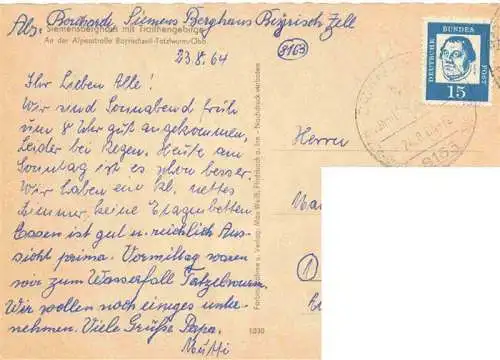 Abs. Borchardt, Siemens Berghaus Bayrisch Zell
Siemensberghaus mit Traithengebirge
An der Alpenstraße Bayrischzell-Tatzelwurm/Obb.
8163
23.8.64
Ihr Lieben Alle!
Wir sind Sonnabend früh
um 8 Uhr gut angekommen,
Leider bei Regen. Heute am
Sonntag ist es schon besser.
Wir haben ein kl. nettes
Zimmer, keine Etagenbetten
Essen ist gut u. reichlich Aus-
sicht prima. Vormittag waren
wir zum Wasserfall Tatzelwurm.
Wir wollen noch einiges unter-
nehmen. Viele Grüße Papa.
Mutti
1030
DEUTSCHE BUNDESPOST
15
8163
Herrn